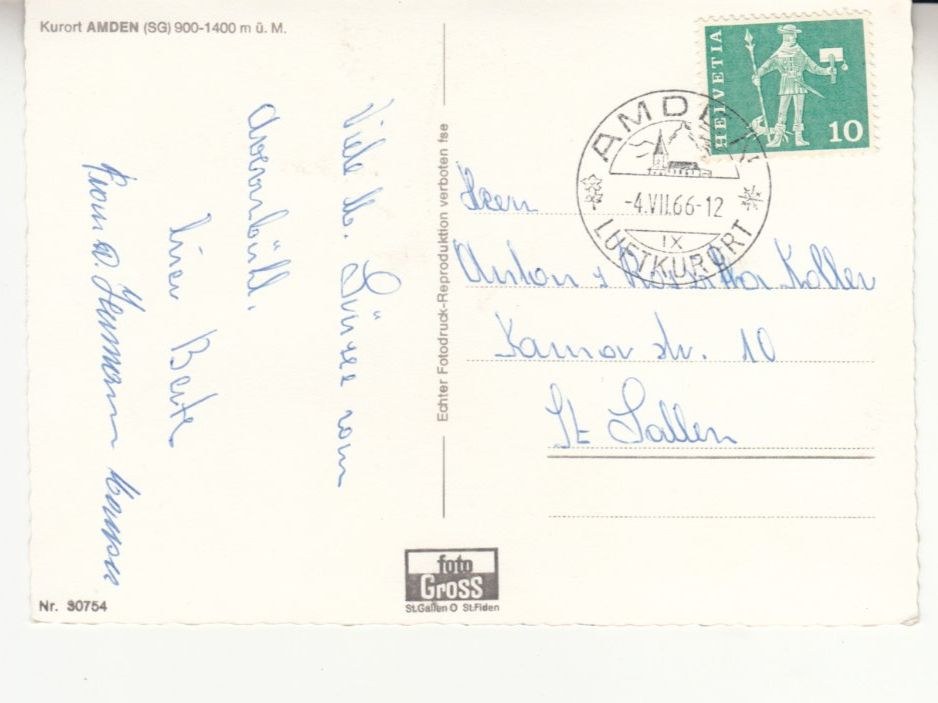 Kurort AMDEN (SG) 900-1400 m ü. M.
Viele lb. Grüsse vom
Arvenbüel.
Euer Beat
Echter Fotodruck-Reproduktion verboten fse
HELVETIA
10
AMDEN
-4.VII.66-12
IX
LUFTKURORT
Herrn
Anton u Koller
Kamor str. 10
St Gallen
foto
Gross
St.Gallen O St.Fiden
Nr. 30754